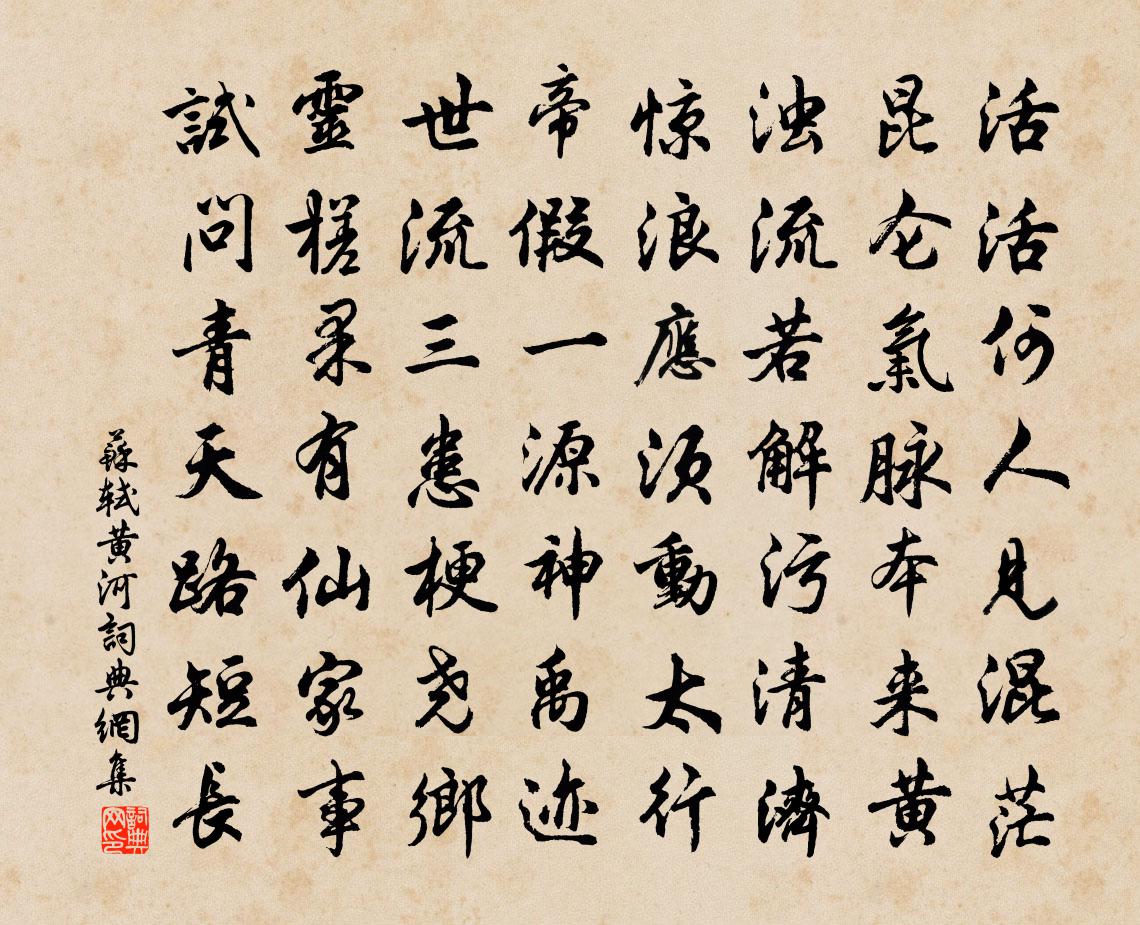 活活何人見混茫
昆仑氣脉本来黄
浊流若解污清濟
惊浪應须動太行
帝假一源神禹迹
世流三患梗尧鄉
靈槎果有仙家事
試問青天路短長
蘇軾黄河詞典網集
詞典网印